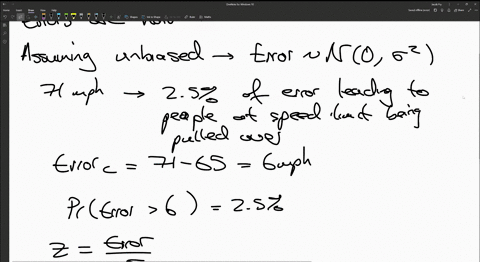 Assuming unbiased → Error ~ N(0, σ²)
71 mph → 2.5% of error leading to
people at speed limit being
pulled over
Error_c = 71 - 65 = 6mph
Pr(Error > 6) = 2.5%
Z = Error